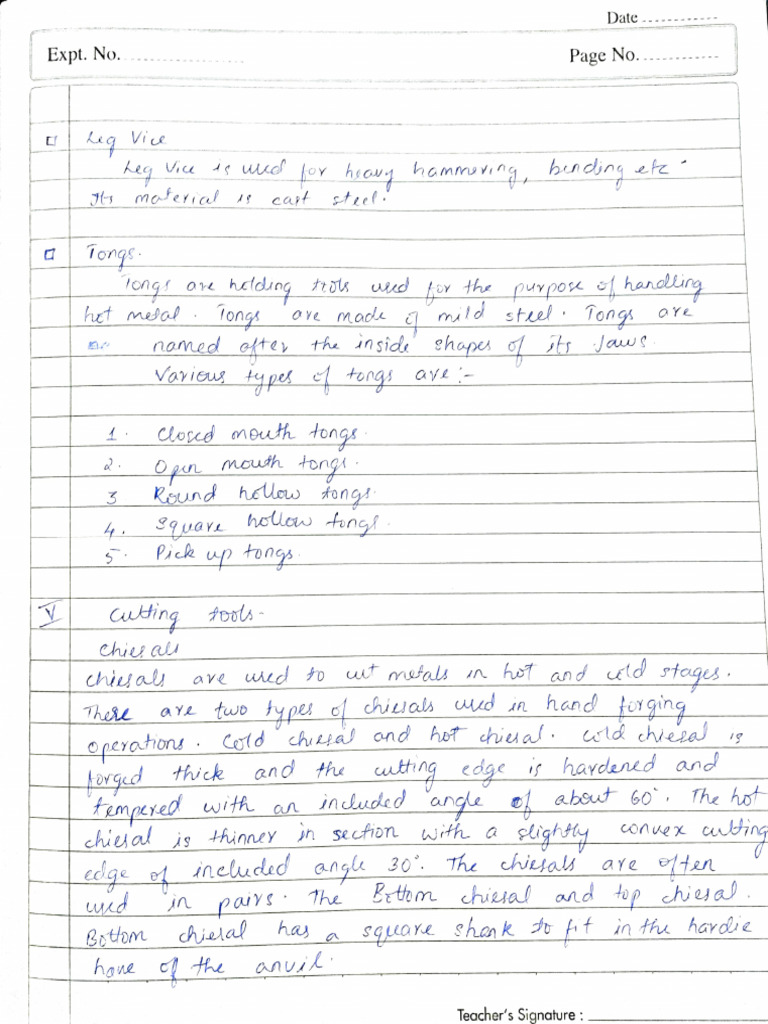 Date ............
Expt. No. ....................
Page No. ............
□ Leg Vice
Leg Vice is used for heavy hammering, bending etc.
Its material is cast steel.
□ Tongs.
Tongs are holding tools used for the purpose of handling
hot metal. Tongs are made of mild steel. Tongs are
named after the inside shapes of its Jaws.
Various types of tongs are :-
1. Closed mouth tongs.
2. Open mouth tongs.
3 Round hollow tongs.
4. Square hollow tongs.
5. Pick up tongs.
V Cutting tools-
Chiesals
Chiesals are used to cut metals in hot and cold stages.
There are two types of chiesals used in hand forging
operations. Cold chiesal and hot chiesal. Cold chiesal is
forged thick and the cutting edge is hardened and
tempered with an included angle of about 60°. The hot
chiesal is thinner in section with a slightly convex cutting
edge of included angle 30°. The chiesals are often
used in pairs. The Bottom chiesal and top chiesal.
Bottom chiesal has a square shank to fit in the hardie
hone of the anvil.
Teacher's Signature : ____________